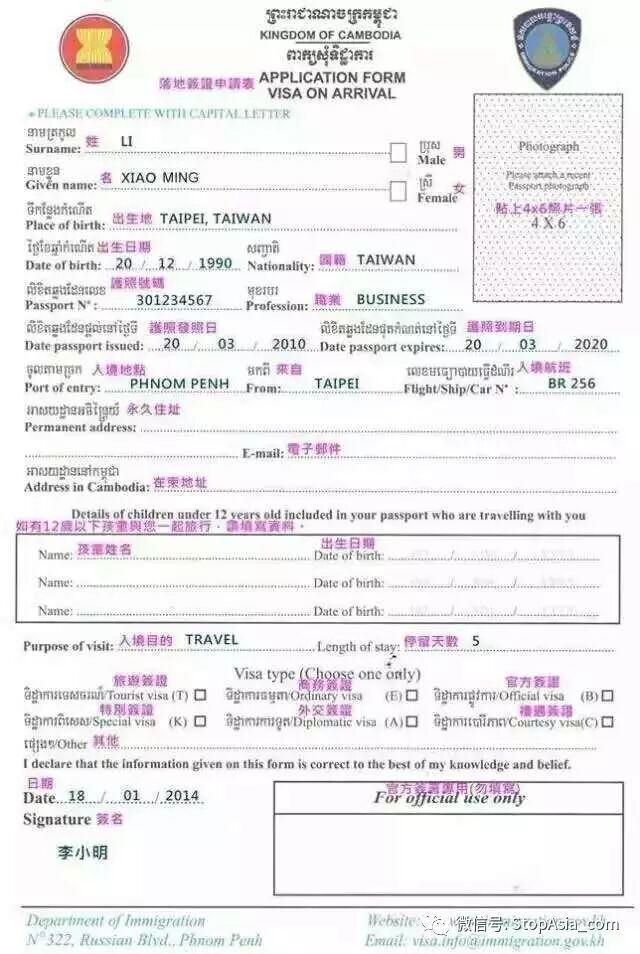 ព្រះរាជាណាចក្រកម្ពុជា
KINGDOM OF CAMBODIA
ពាក្យសុំទិដ្ឋាការ
落地簽證申請表 APPLICATION FORM
VISA ON ARRIVAL
IMMIGRATION POLICE
* PLEASE COMPLETE WITH CAPITAL LETTER
នាមត្រកូល
Surname: 姓 LI
ប្រុស
Male 男
នាមខ្លួន
Given name: 名 XIAO MING
ស្រី
Female 女
Photograph
Please attach a recent
Passport photograph
貼上4x6照片一張
4 X 6
ទីកន្លែងកំណើត
Place of birth: 出生地 TAIPEI, TAIWAN
ថ្ងៃខែឆ្នាំកំណើត 出生日期 សញ្ជាតិ
Date of birth: 20 / 12 / 1990 Nationality: 國籍 TAIWAN
លិខិតឆ្លងដែនលេខ 護照號碼 មុខរបរ
Passport Nº : 301234567 Profession: 職業 BUSINESS
លិខិតឆ្លងដែនផ្តល់នៅថ្ងៃទី 護照發照日 លិខិតឆ្លងដែនផុតកំណត់នៅថ្ងៃទី 護照到期日
Date passport issued: 20 / 03 / 2010 Date passport expires: 20 / 03 / 2020
ចូលតាមច្រក 入境地點 មកពី 來自 លេខមធ្យោបាយធ្វើដំណើរ 入境航班
Port of entry: PHNOM PENH From: TAIPEI Flight/Ship/Car Nº : BR 256
អាសយដ្ឋានអចិន្ត្រៃយ៍ 永久住址
Permanent address:
E-mail: 電子郵件
អាសយដ្ឋាននៅកម្ពុជា
Address in Cambodia: 在柬地址
Details of children under 12 years old included in your passport who are travelling with you
如有12歲以下孩童與您一起旅行，請填寫資料。
Name: 孩童姓名 Date of birth: 出生日期
Name: Date of birth:
Name: Date of birth:
Purpose of visit: 入境目的 TRAVEL Length of stay: 停留天數 5
Visa type (Choose one only)
旅遊簽證 商務簽證 官方簽證
ទិដ្ឋាការទេសចរណ៍/Tourist visa (T) ទិដ្ឋាការធម្មតា/Ordinary visa (E) ទិដ្ឋាការផ្លូវការ/Official visa (B)
特別簽證 外交簽證 禮遇簽證
ទិដ្ឋាការពិសេស/Special visa (K) ទិដ្ឋាការការទូត/Diplomatic visa (A) ទិដ្ឋាការគួរសម/Courtesy visa(C)
ផ្សេងៗ/Other 其他
I declare that the information given on this form is correct to the best of my knowledge and belief.
日期
Date 18 / 01 / 2014
Signature 簽名
李小明
官方簽署專用(勿填寫)
For official use only
Department of Immigration
Nº 322, Russian Blvd., Phnom Penh
Website:
Email: visa.info@immigration.gov.kh
微信号: StopAsia_com